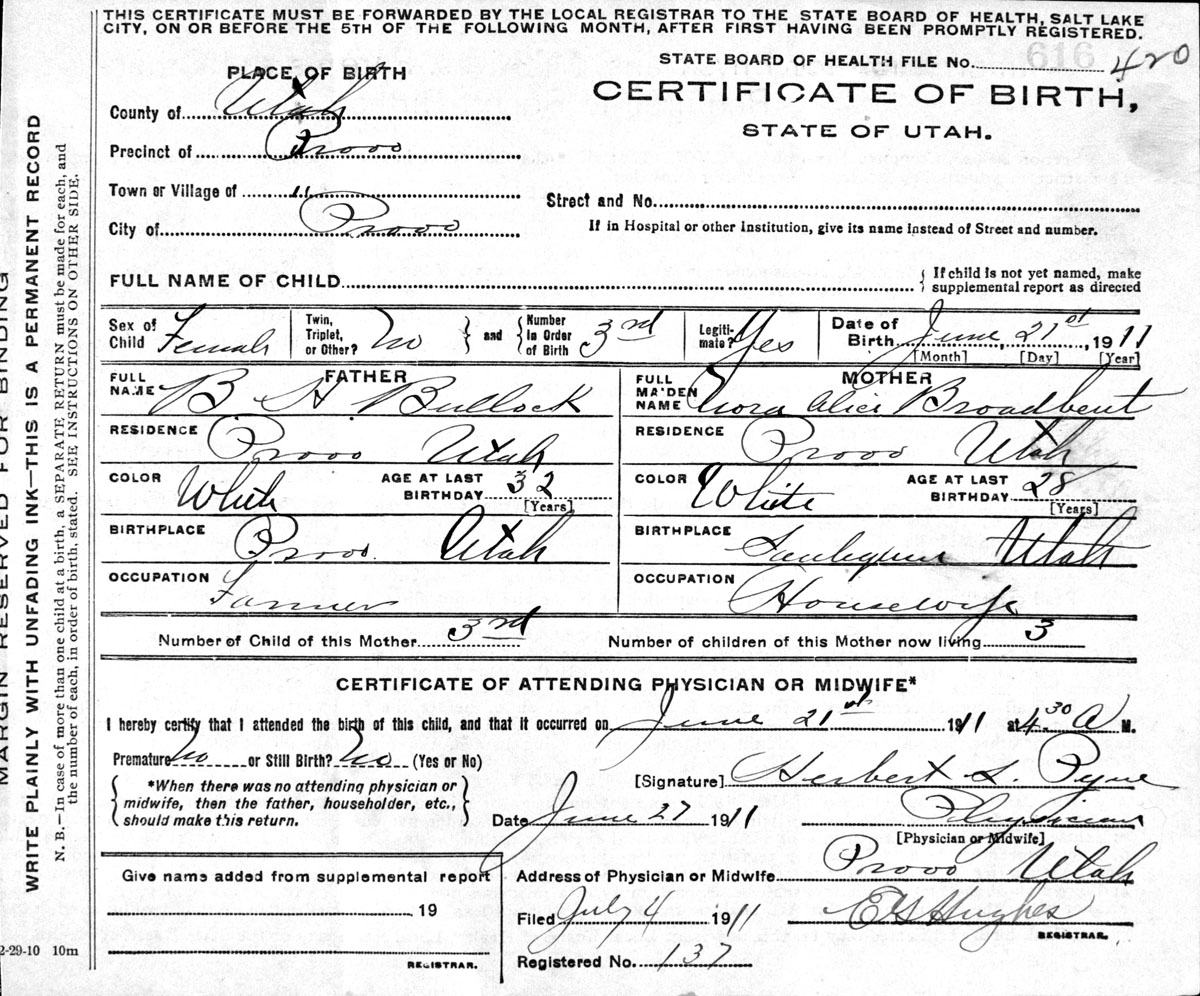 THIS CERTIFICATE MUST BE FORWARDED BY THE LOCAL REGISTRAR TO THE STATE BOARD OF HEALTH, SALT LAKE
CITY, ON OR BEFORE THE 5TH OF THE FOLLOWING MONTH, AFTER FIRST HAVING BEEN PROMPTLY REGISTERED.
STATE BOARD OF HEALTH FILE No. 616 420
PLACE OF BIRTH
CERTIFICATE OF BIRTH,
STATE OF UTAH.
County of Utah
Precinct of Provo
Town or Village of "
City of Provo
Street and No.
If in Hospital or other Institution, give its name instead of Street and number.
FULL NAME OF CHILD
If child is not yet named, make
supplemental report as directed
Sex of Child Female
Twin, Triplet, or Other? No
and Number In Order of Birth 3rd
Legitimate? Yes
Date of Birth June 21st, 1911
[Month] [Day] [Year]
FATHER
FULL NAME B H Bullock
RESIDENCE Provo Utah
COLOR White AGE AT LAST BIRTHDAY 32
[Years]
BIRTHPLACE Provo. Utah
OCCUPATION Farmer
MOTHER
FULL MAIDEN NAME Alice Broadbent
RESIDENCE Provo Utah
COLOR White AGE AT LAST BIRTHDAY 28
[Years]
BIRTHPLACE Utah
OCCUPATION Housewife
Number of Child of this Mother 3rd
Number of children of this Mother now living 3
CERTIFICATE OF ATTENDING PHYSICIAN OR MIDWIFE*
I hereby certify that I attended the birth of this child, and that it occurred on June 21st 1911 at 4.30 A M.
Premature No or Still Birth? No (Yes or No)
*When there was no attending physician or
midwife, then the father, householder, etc.,
should make this return.
[Signature] Herbert S. Pyne
Date June 27 1911 Physician
[Physician or Midwife]
Address of Physician or Midwife Provo Utah
Give name added from supplemental report
19
REGISTRAR.
Filed July 4 1911 Hughes
REGISTRAR.
Registered No. 137
MARGIN RESERVED FOR BINDING
WRITE PLAINLY WITH UNFADING INK—THIS IS A PERMANENT RECORD
N. B.—In case of more than one child at a birth, a SEPARATE RETURN must be made for each, and
the number of each, in order of birth, stated. SEE INSTRUCTIONS ON OTHER SIDE.
2-29-10 10m